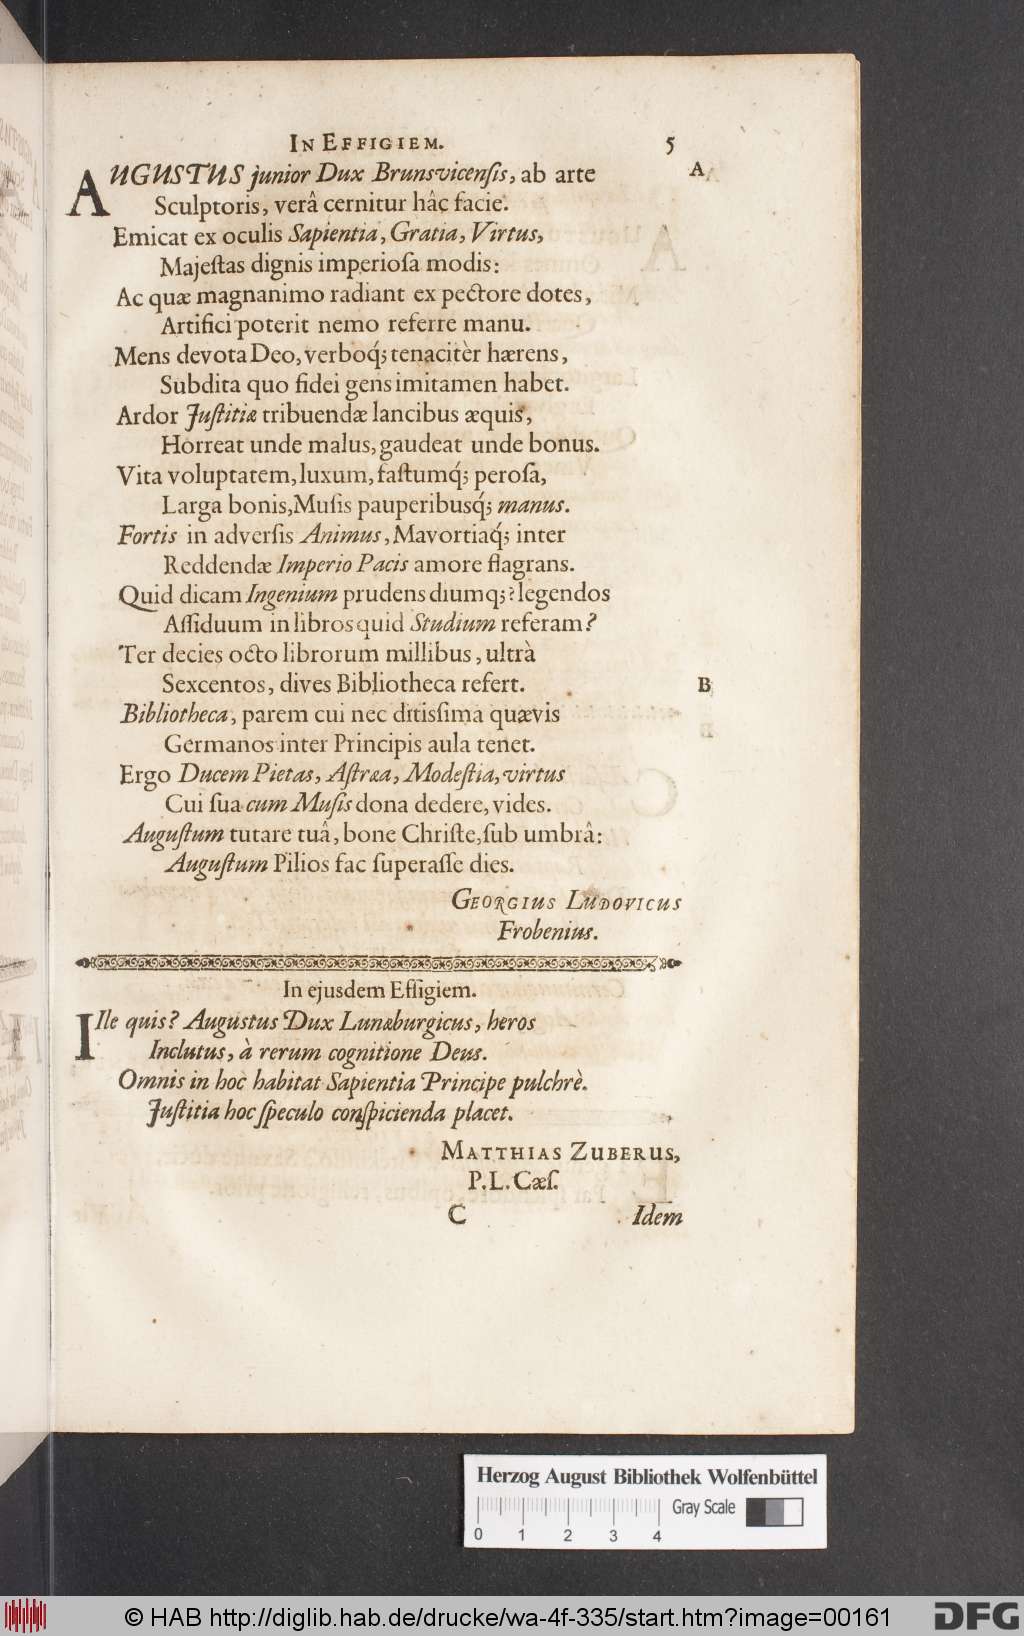 IN EFFIGIEM. 5
AUGUSTUS junior Dux Brunsvicenſis, ab arte A
Sculptoris, verâ cernitur hâc facie.
Emicat ex oculis Sapientia, Gratia, Virtus,
Majeſtas dignis imperioſa modis:
Ac quæ magnanimo radiant ex pectore dotes,
Artifici poterit nemo referre manu.
Mens devota Deo, verboq́; tenacitèr hærens,
Subdita quo fidei gens imitamen habet.
Ardor Juſtitiæ tribuendæ lancibus æquis,
Horreat unde malus, gaudeat unde bonus.
Vita voluptatem, luxum, faſtumq́; peroſa,
Larga bonis, Muſis pauperibusq́; manus.
Fortis in adverſis Animus, Mavortiaq́; inter
Reddendæ Imperio Pacis amore flagrans.
Quid dicam Ingenium prudens diumq;? legendos
Aſſiduum in libros quid Studium referam?
Ter decies octo librorum millibus, ultrà
Sexcentos, dives Bibliotheca refert. B
Bibliotheca, parem cui nec ditiſſima quævis
Germanos inter Principis aula tenet.
Ergo Ducem Pietas, Aſtræa, Modeſtia, virtus
Cui ſua cum Muſis dona dedere, vides.
Auguſtum tutare tuâ, bone Chriſte, ſub umbrâ:
Auguſtum Pilios fac ſuperaſſe dies.
GEORGIUS LUDOVICUS
Frobenius.
In ejusdem Effigiem.
IIle quis? Augustus Dux Lunæburgicus, heros
Inclutus, à rerum cognitione Deus.
Omnis in hoc habitat Sapientia Principe pulchrè.
Juſtitia hoc ſpeculo conſpicienda placet.
MATTHIAS ZUBERUS,
P. L. Cæſ.
C Idem
Herzog August Bibliothek Wolfenbüttel
Gray Scale
0 1 2 3 4
© HAB http://diglib.hab.de/drucke/wa-4f-335/start.htm?image=00161
DFG